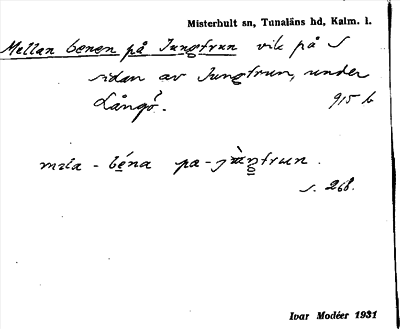 Misterhult sn, Tunaläns hd, Kalm. l.
Mellan benen på Jungfrun vik på S
sidan av Jungfrun, under
Långö. 915 b
mela - béna pa - jùngfrun.
s. 268.
Ivar Modéer 1931